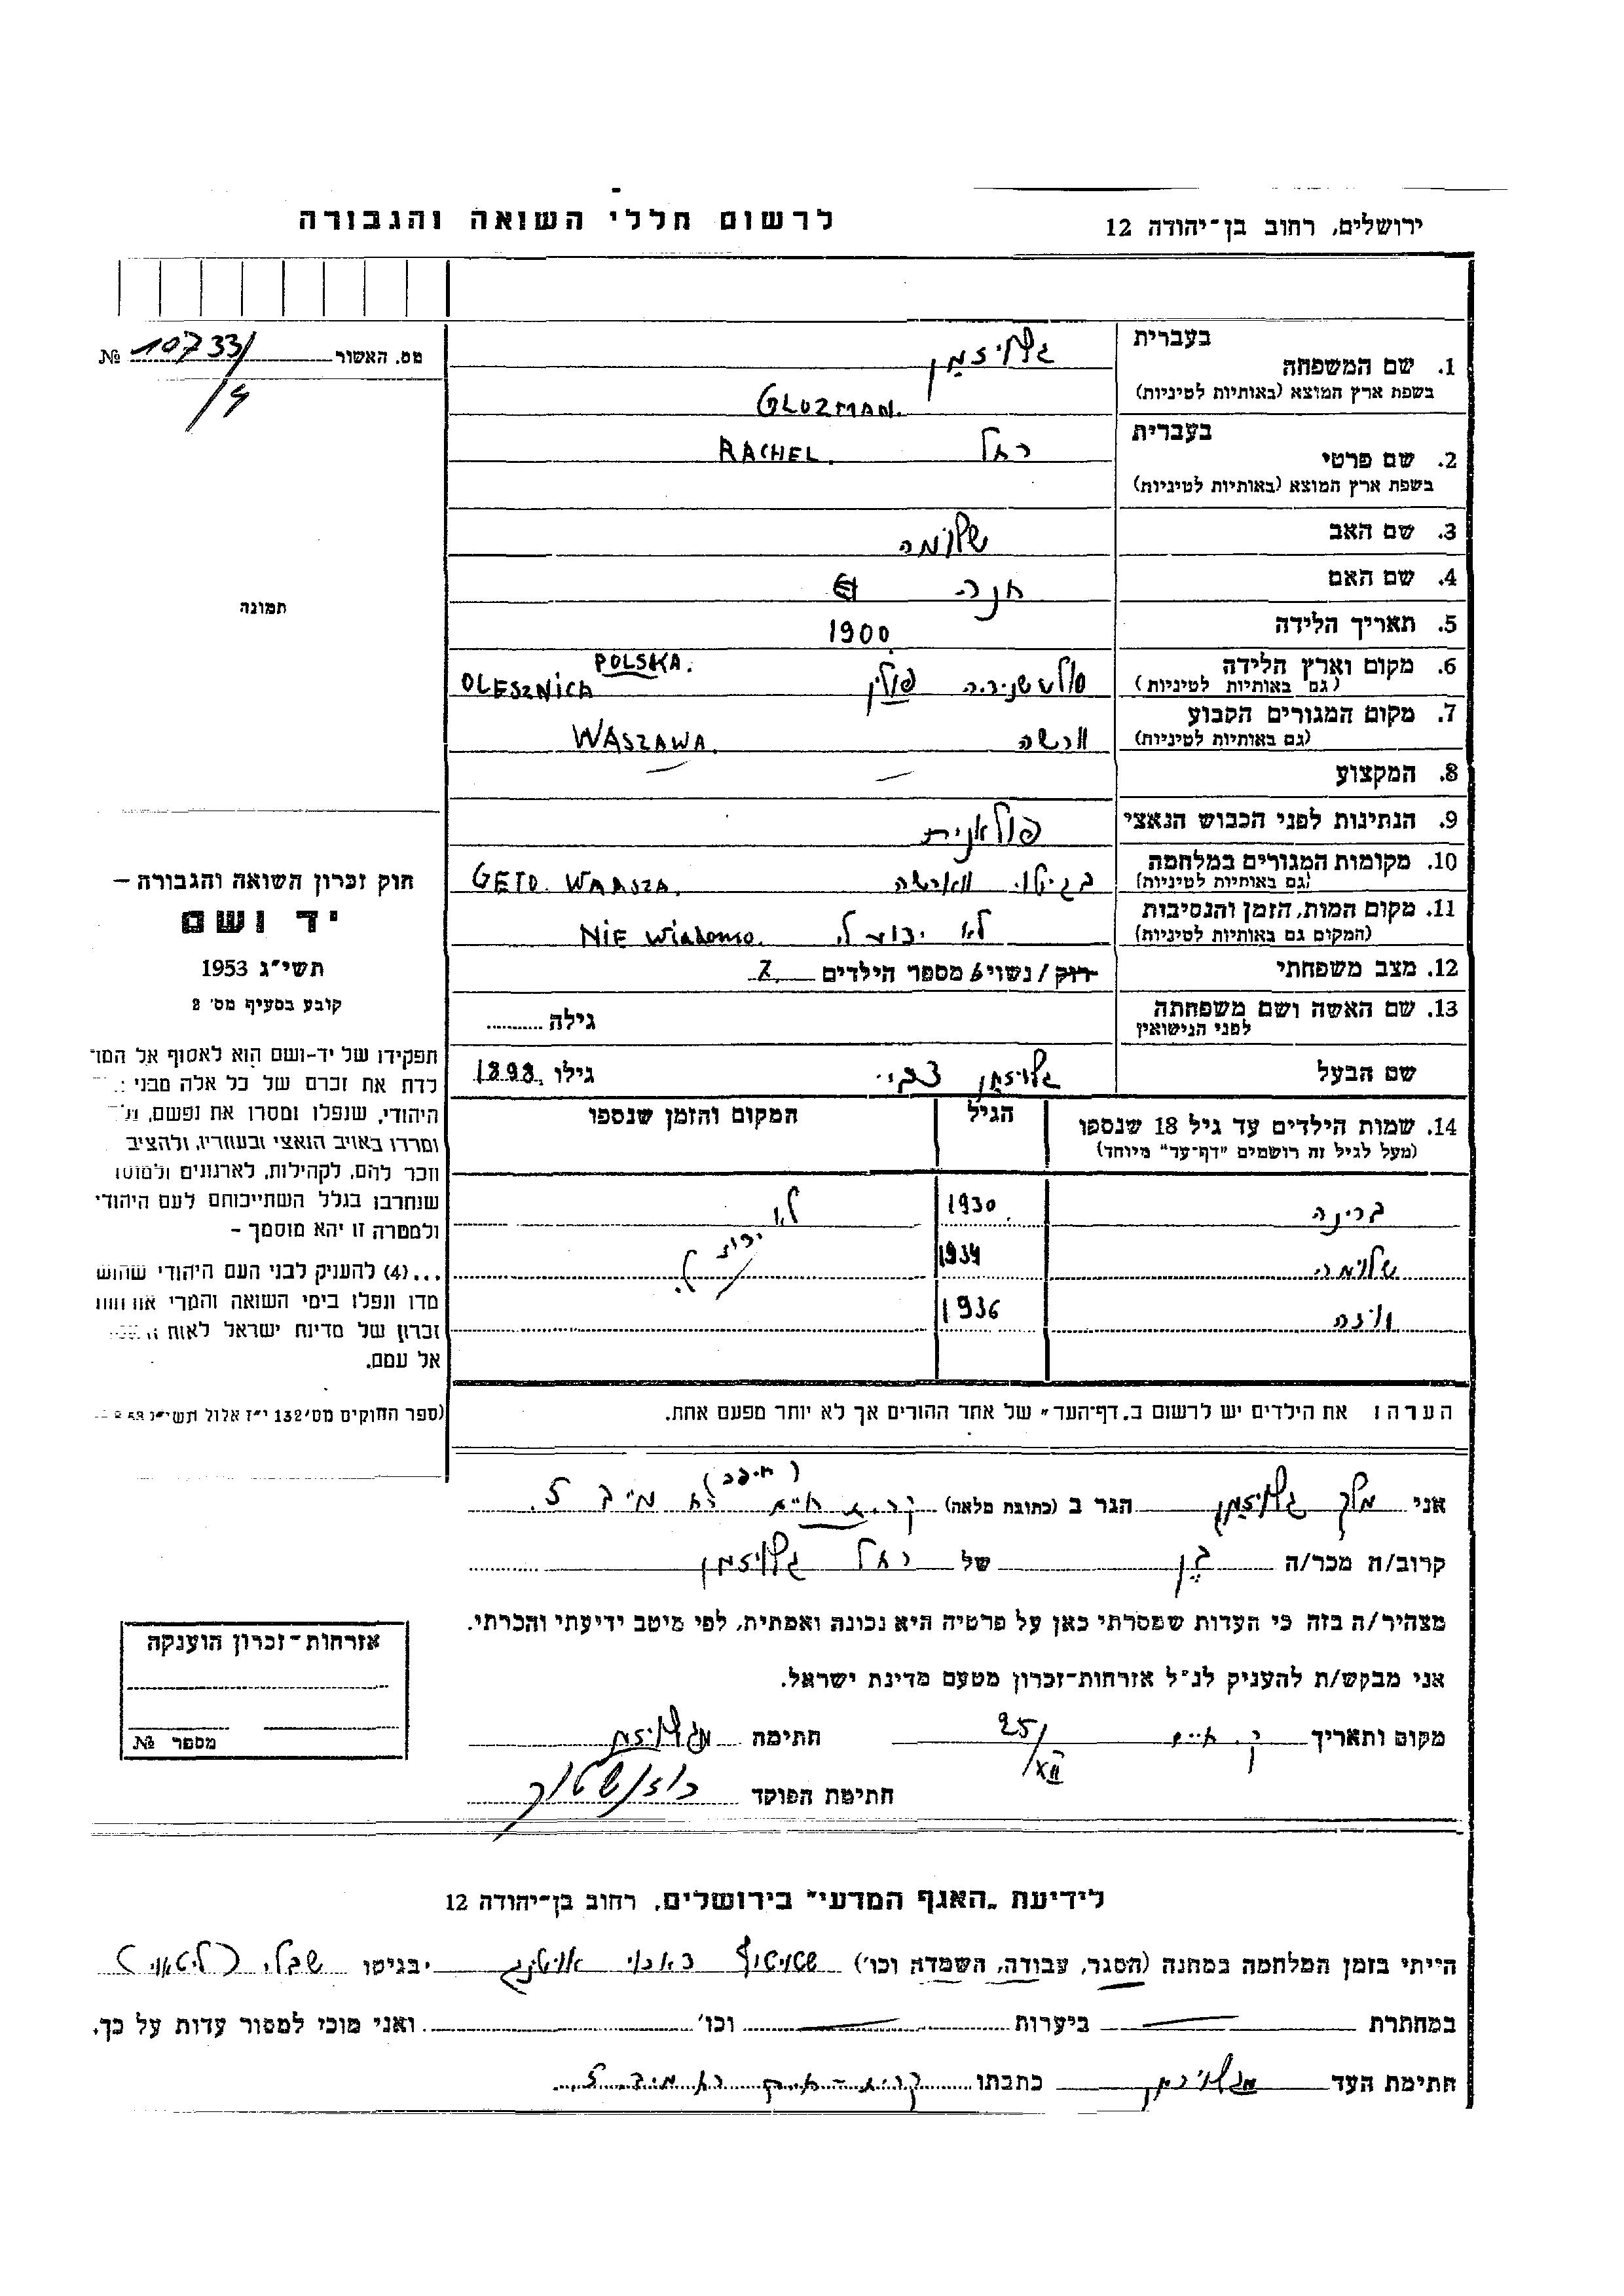 לרשום חללי השואה והגבורה
ירושלים, רחוב בן־יהודה 12
מס. האשור № 10733/
/9
בעברית גלויזמן
1. שם המשפחה
בשפת ארץ המוצא (באותיות לטיניות) GLUZMAN.
בעברית
2. שם פרטי רחל RACHEL.
בשפת ארץ המוצא (באותיות לטיניות)
3. שם האב שלומה
4. שם האם חנה
5. תאריך הלידה 1900
6. מקום וארץ הלידה POLSKA.
(גם באותיות לטיניות) פולין OLESZNICA
7. מקום המגורים הקבוע
(גם באותיות לטיניות) ורשה WASZAWA.
8. המקצוע —
9. הנתינות לפני הכבוש הנאצי פולאנית
10. מקומות המגורים במלחמה
(גם באותיות לטיניות) בגיטו ווארשה GETO. WAASZA.
11. מקום המות, הזמן והנסיבות
(המקום גם באותיות לטיניות) לא ידוע לי NIE Wiadomo.
12. מצב משפחתי רוק / נשוי מספר הילדים 7
13. שם האשה ושם משפחתה
לפני הנישואין גילה
שם הבעל גלויזמן צבי גילו 1898
14. שמות הילדים עד גיל 18 שנספו
(מעל לגיל זה רושמים "דף־עד" מיוחד)
הגיל
המקום והזמן שנספו
ברינה 1930 לא
שלומה 1934 ידוע לי
1936
הערה: את הילדים יש לרשום ב„דף־העד" של אחד ההורים אך לא יותר מפעם אחת.
תמונה
חוק זכרון השואה והגבורה –
יד ושם
תשי"ג 1953
קובע בסעיף מס' 2
תפקידו של יד-ושם הוא לאסוף אל המו
לדת את זכרם של כל אלה מבני
היהודי, שנפלו ומסרו את נפשם,
ומרדו באויב הנאצי ובעוזריו, ולהציב
וזכר להם, לקהילות, לארגונים ולמוסו
שנחרבו בגלל השתייכותם לעם היהודי
ולמטרה זו יהא מוסמך –
...(4) להעניק לבני העם היהודי שהוש
מדו ונפלו בימי השואה והמרי אזרחות
זכרון של מדינת ישראל לאות
אל עמם.
(ספר החוקים מס' 132 י"ז אלול תשי"ג
אני מלך גלויזמן הגר ב (כתובת מלאה) קרית חיים רח מייב 5.
קרוב/ה מכר/ה בן של רחל גלויזמן
מצהיר/ה בזה כי העדות שמסרתי כאן על פרטיה היא נכונה ואמתית, לפי מיטב ידיעתי והכרתי.
אני מבקש/ת להעניק לנ"ל אזרחות-זכרון מטעם מדינת ישראל.
מקום ותאריך ק. חיים 25/XII חתימה מגלויזמן
חתימת הפוקד
אזרחות-זכרון הוענקה
מספר №
לידיעת „האגף המדעי" בירושלים, רחוב בן־יהודה 12
הייתי בזמן המלחמה במחנה (הסגר, עבודה, השמדה וכו') שטוטהוף דאכוי בגיטו שבלי (ליטאי)
במחתרת — ביערות — וכו' ואני מוכן למסור עדות על כך.
חתימת העד מגלויזמן כתבתו קרית-חיים רח מייב 5.